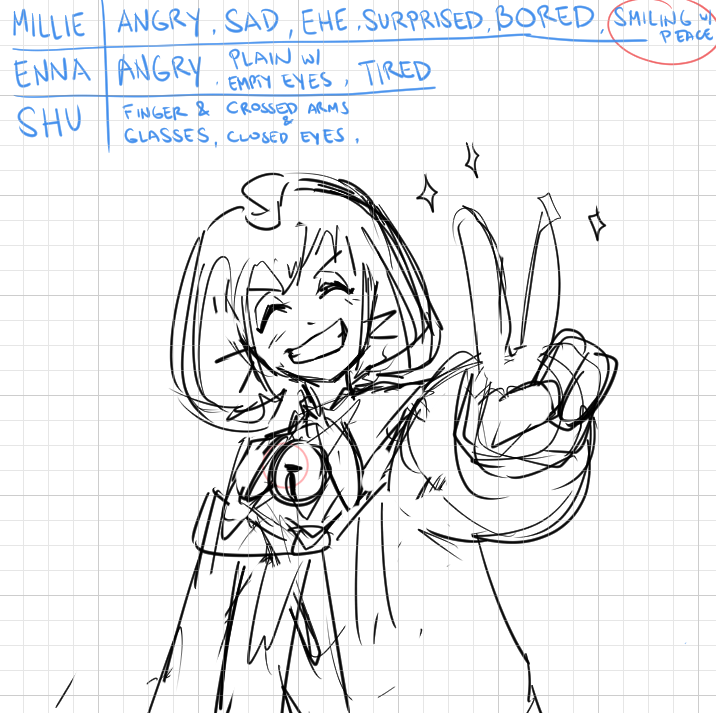 MILLIE ANGRY, SAD, EHE, SURPRISED, BORED, SMILING W/
PEACE
ENNA ANGRY, PLAIN W/
EMPTY EYES, TIRED
SHU FINGER & CROSSED ARMS
&
GLASSES, CLOSED EYES,